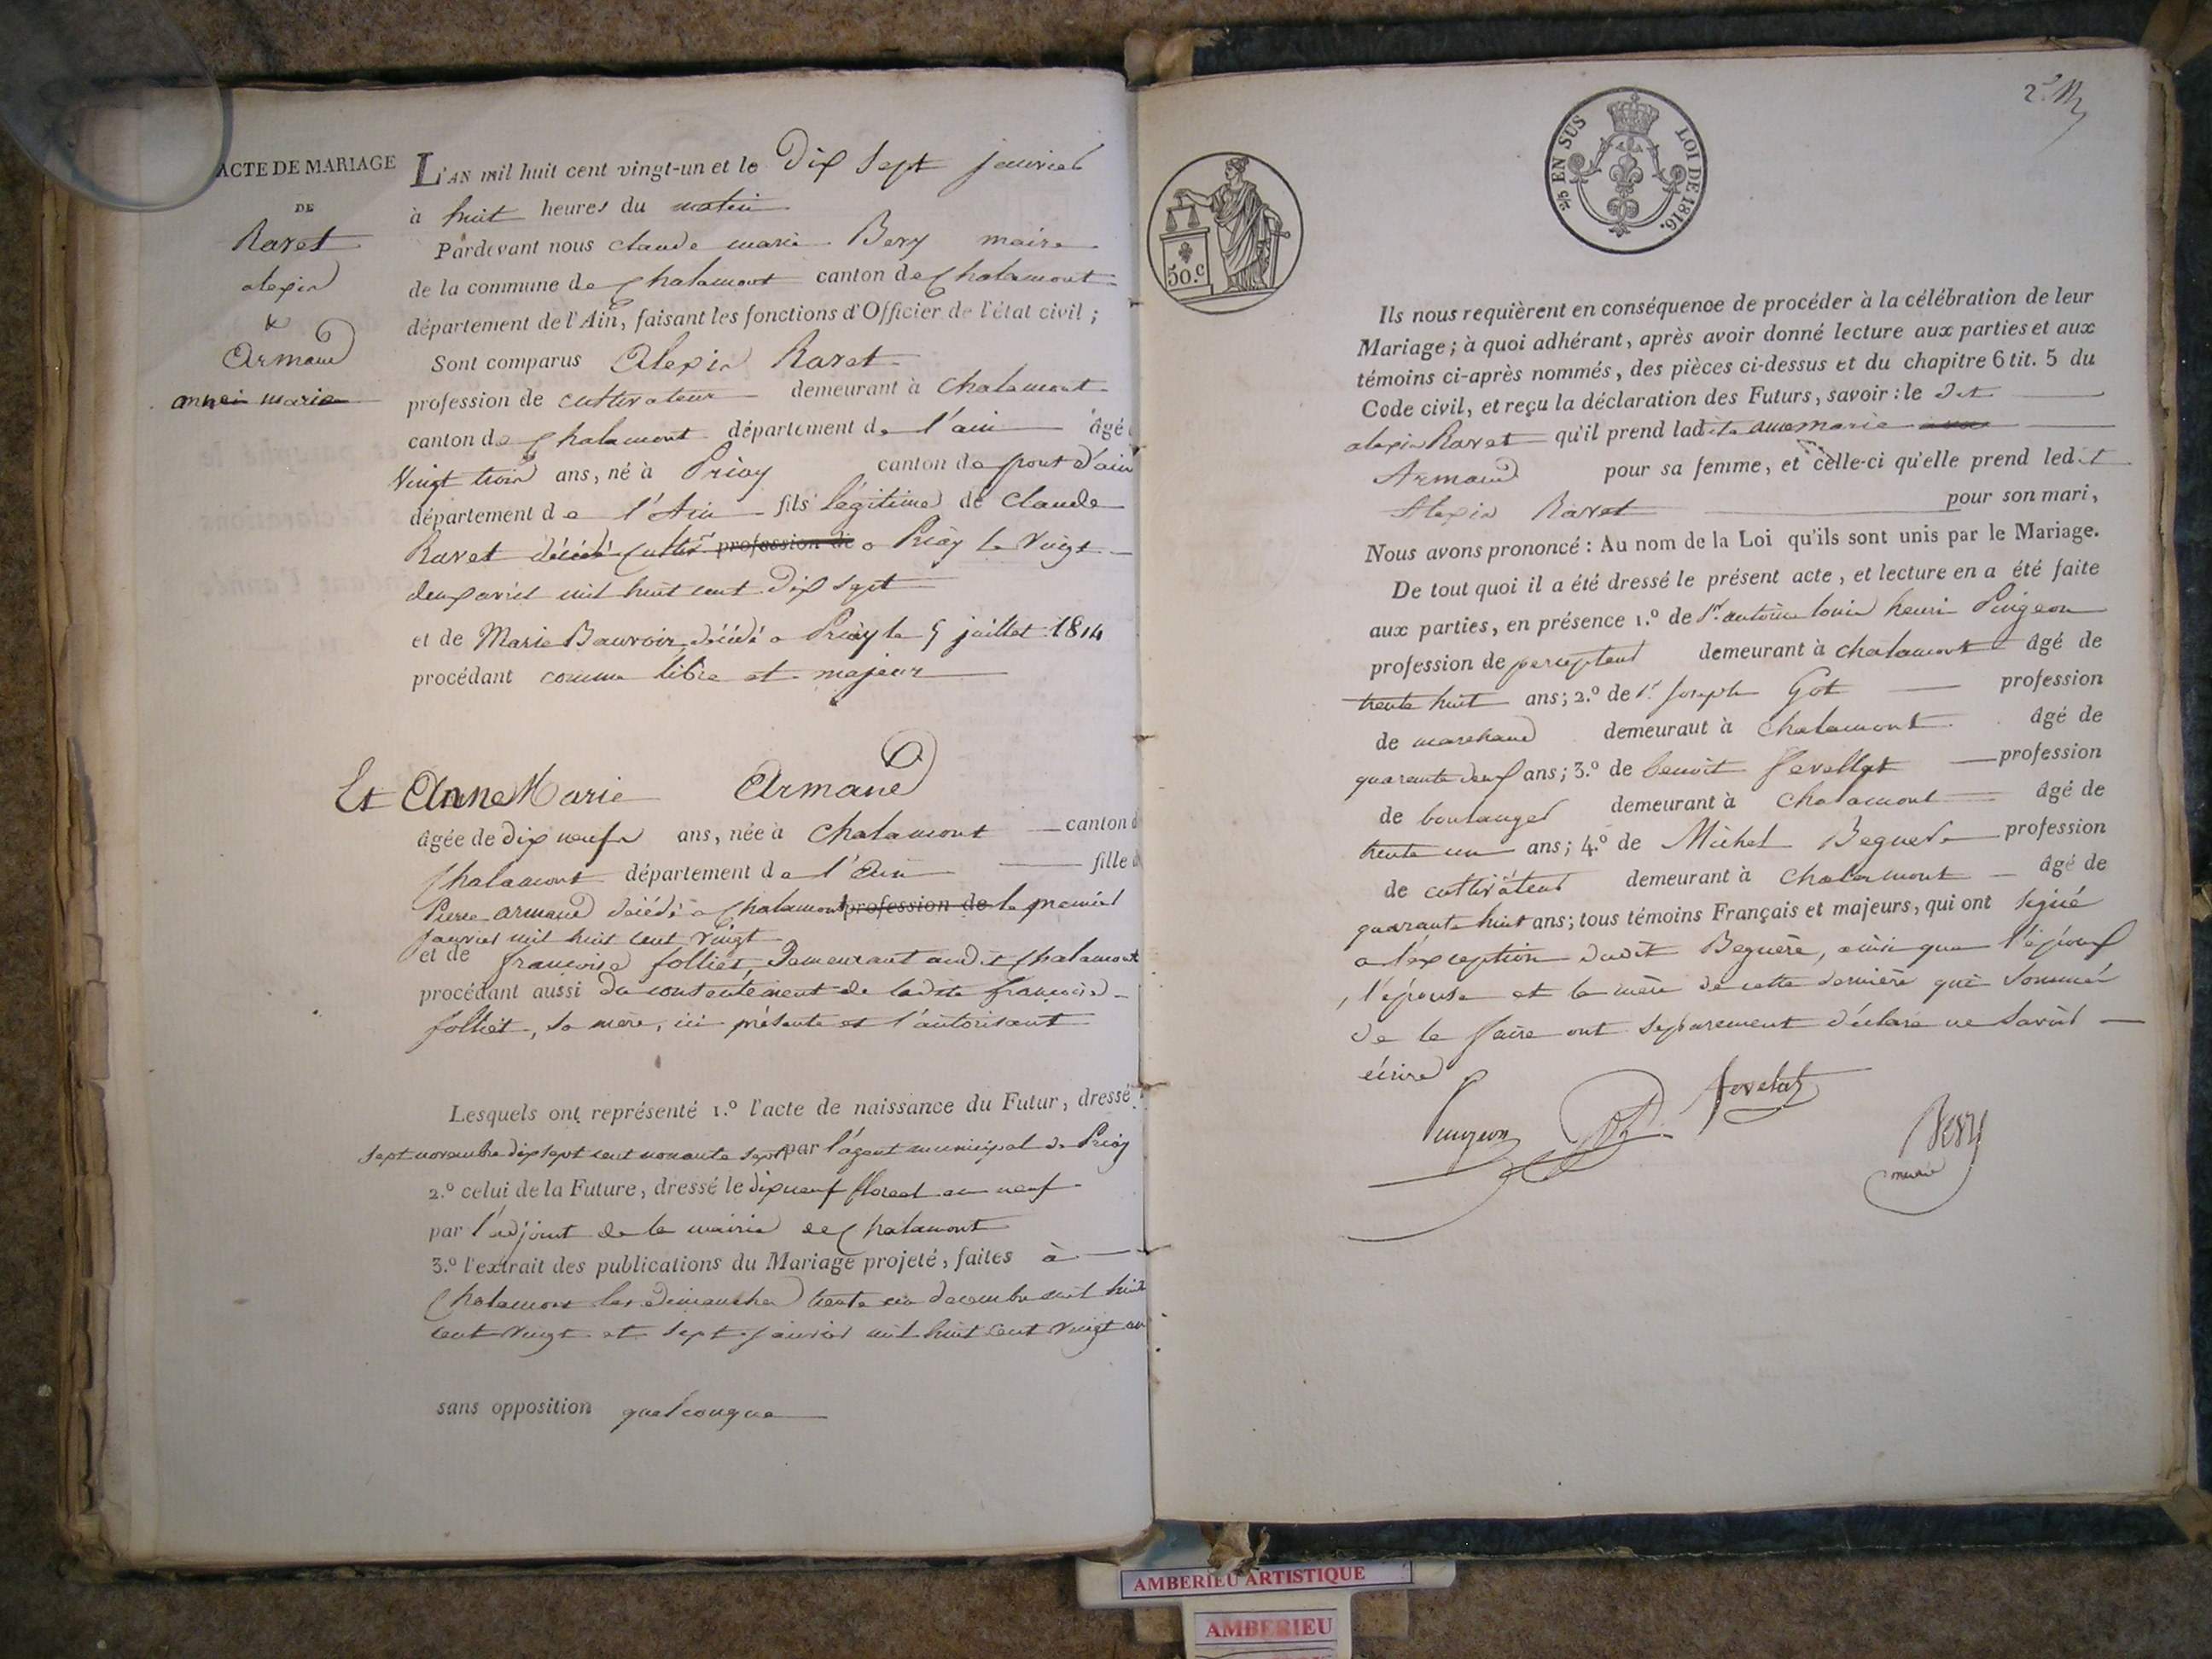 ACTE DE MARIAGE
DE
Ravet
alexis
&
Armand
anne marie
L'AN mil huit cent vingt-un et le dix sept janvier
à huit heures du matin
Pardevant nous claude marie Bery maire
de la commune de Chalamont canton de Chalamont
département de l'Ain, faisant les fonctions d'Officier de l'état civil ;
Sont comparus Alexis Ravet
profession de cultivateur demeurant à Chalamont
canton de Chalamont département de l'ain âgé
Vingt trois ans, né à Priay canton de pont d'ain
département de l'Ain fils légitime de Claude
Ravet décédé cultiv.r profession de a Priay le Vingt
deux avril mil huit cent dix sept
et de Marie Bauvoir décédé a Priay le 5 juillet 1814
procédant comme libre et majeur
Et Anne Marie Armand
âgée de dix neuf ans, née à Chalamont canton d
Chalamont département de l'Ain fille d
Pierre armand décédé a Chalamont profession de le premier
Janvier mil huit cent vingt
et de françoise folliet, Demeurant audit Chalamont
procédant aussi du consentement de ladite françoise
folliet, sa mère, ici présente et l'autorisant
Lesquels ont représenté 1.º l'acte de naissance du Futur, dressé
sept novembre dix sept cent nonante sept par l'agent municipal de Priay
2.º celui de la Future, dressé le dix neuf floreal an neuf
par l'adjoint de la mairie de Chalamont
3.º l'extrait des publications du Mariage projeté, faites à
Chalamont les dimanches trente un decembre mil huit
cent vingt et sept janvier mil huit cent vingt un
sans opposition quelconque
50.c
EN SUS LOI DE 1816.
Ils nous requièrent en conséquence de procéder à la célébration de leur
Mariage ; à quoi adhérant, après avoir donné lecture aux parties et aux
témoins ci-après nommés, des pièces ci-dessus et du chapitre 6 tit. 5 du
Code civil, et reçu la déclaration des Futurs, savoir : le dit
alexis Ravet qu'il prend ladite anne marie
Armand pour sa femme, et celle-ci qu'elle prend ledit
Alexis Ravet pour son mari,
Nous avons prononcé : Au nom de la Loi qu'ils sont unis par le Mariage.
De tout quoi il a été dressé le présent acte, et lecture en a été faite
aux parties, en présence 1.º de S.r antoine louis henri Puigeon
profession de percepteur demeurant à chalamont âgé de
trente huit ans ; 2.º de S.r Joseph Got profession
de marchand demeuraut à Chalamont âgé de
quarante deux ans ; 3.º de benoit fevellat profession
de boulanger demeurant à Chalamont âgé de
trente un ans ; 4.º de Michel Beguere profession
de cultivateur demeurant à Chalamont âgé de
quarante huit ans ; tous témoins Français et majeurs, qui ont signé
a l'exception dudit Beguère, ainsi que l'époux
, l'épouse et la mère de cette dernière qui sommés
de le faire ont separement déclaré ne savoir
écrire
Puigeon
fevelat
Bery
maire
AMBERIEU ARTISTIQUE
AMBERIEU